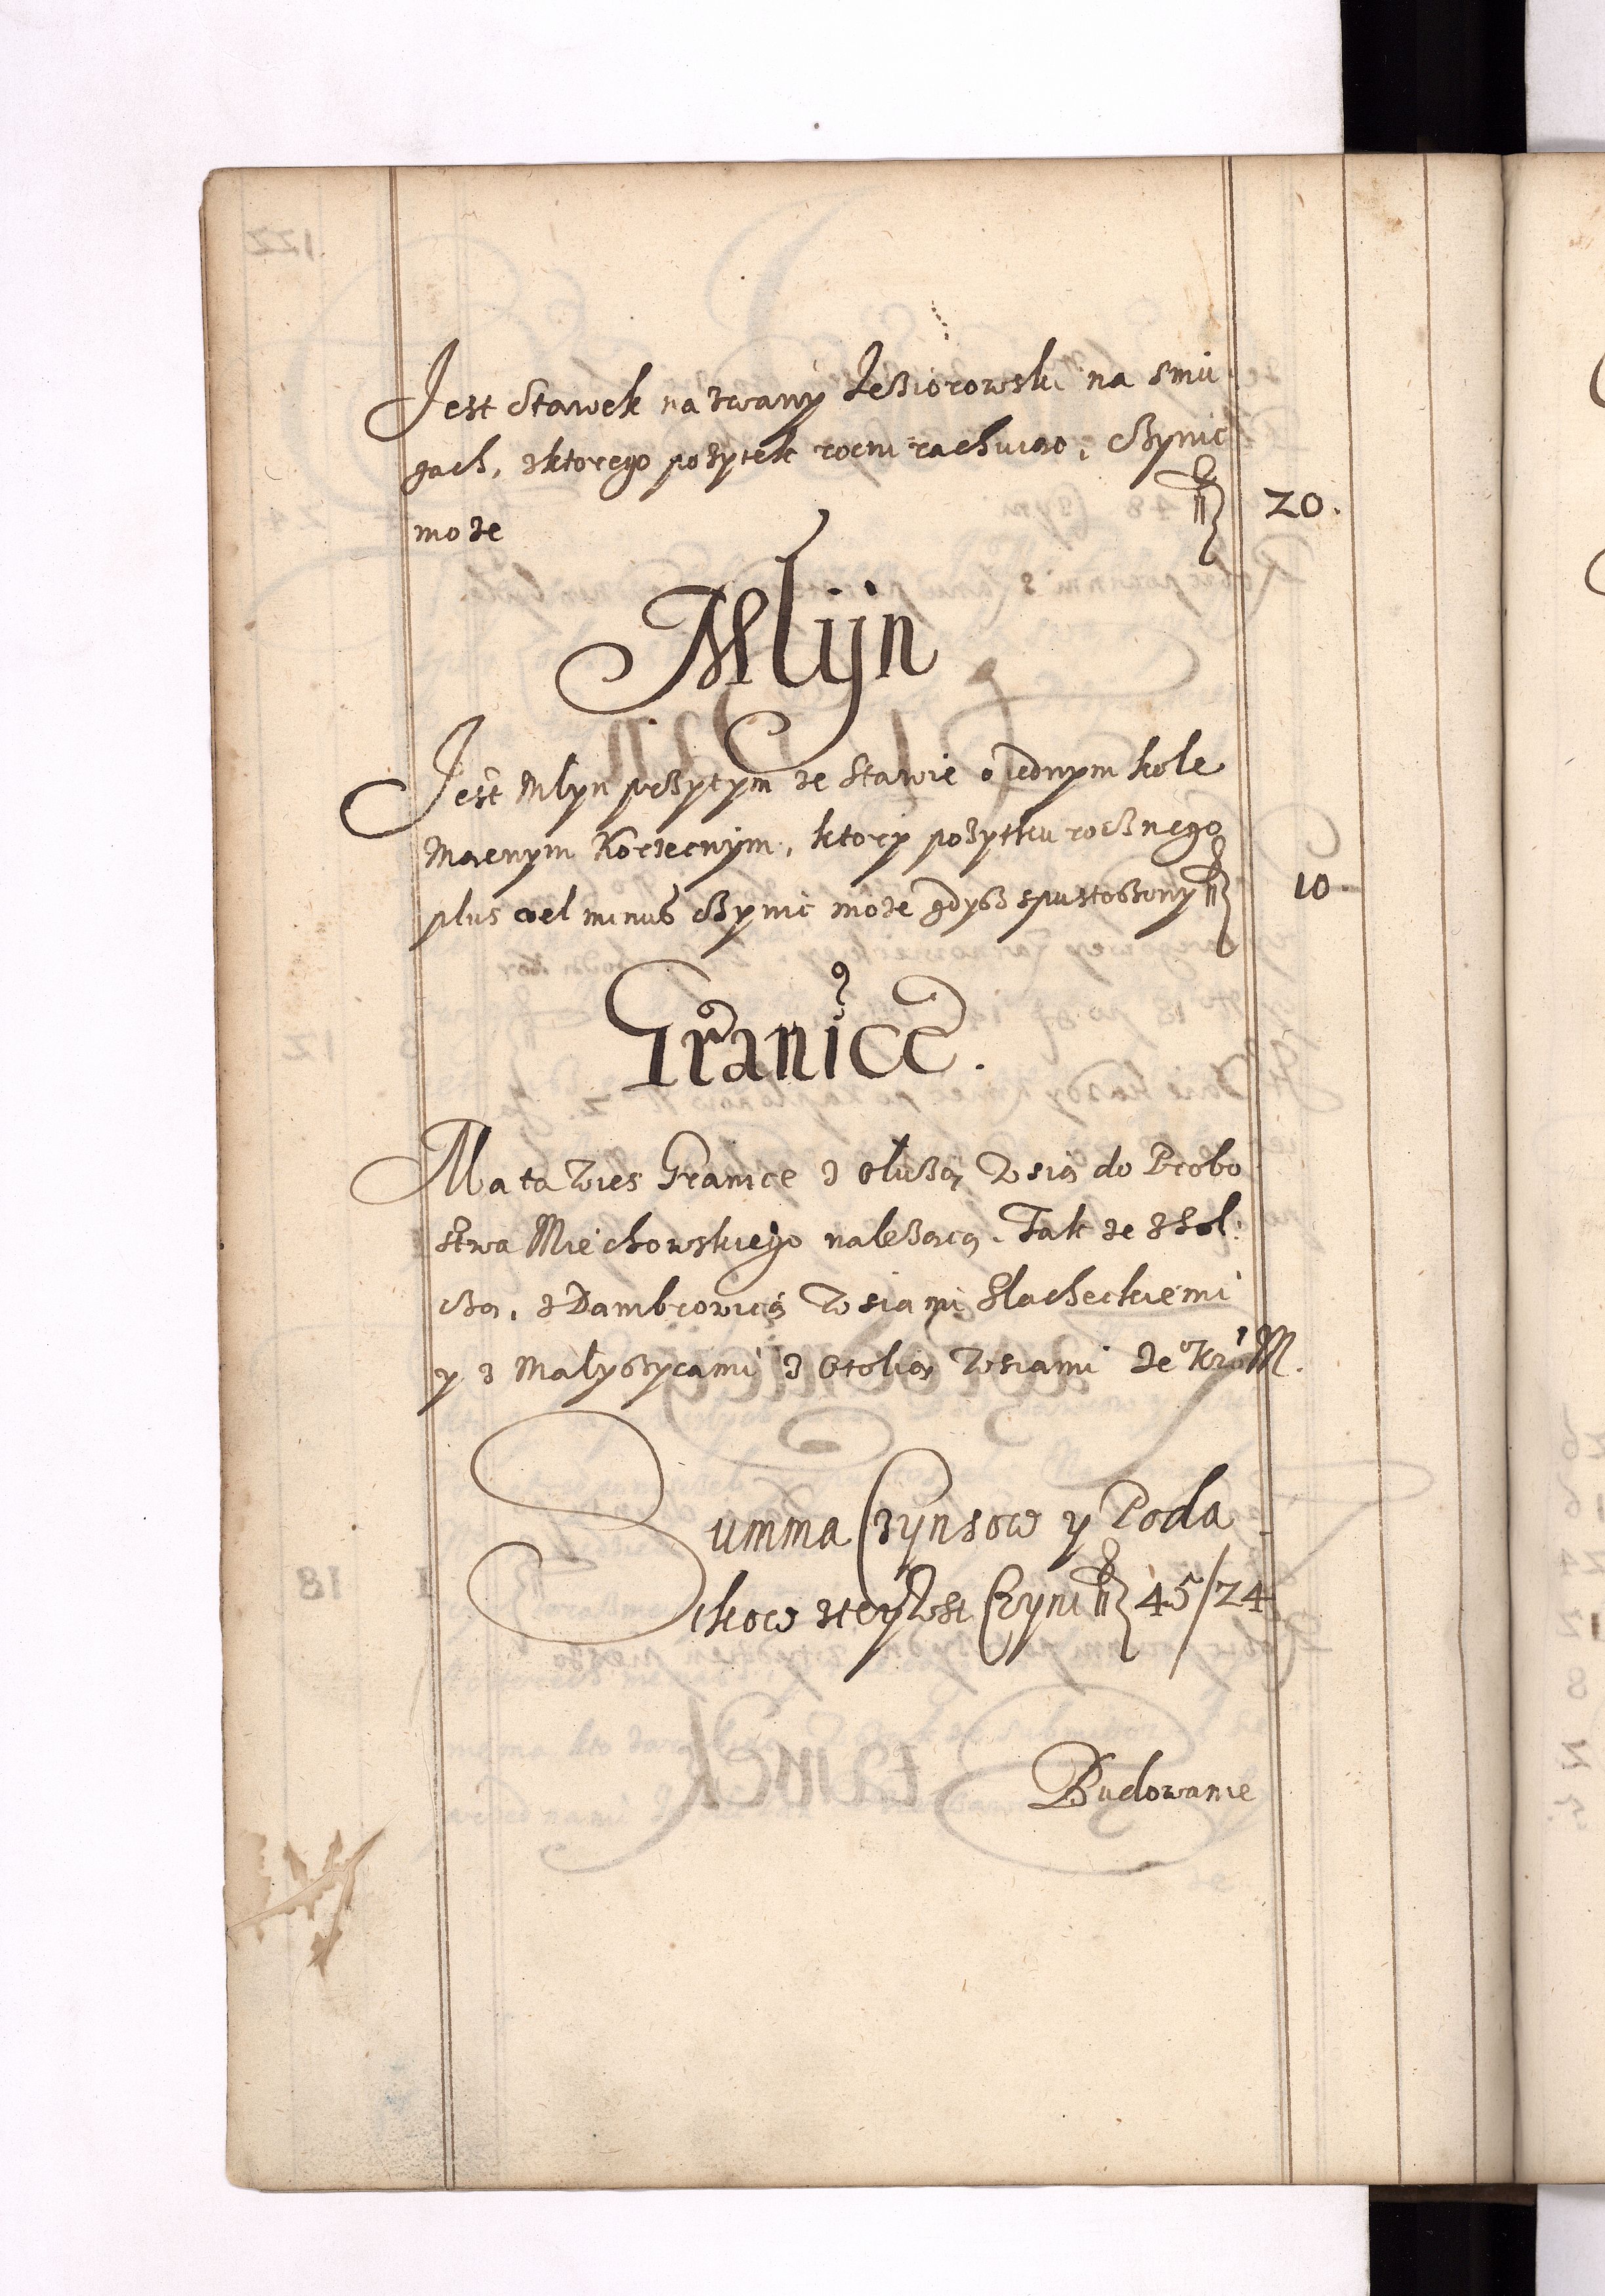 Jest Stawek nazwany Jeziorowski na smu
gach, zktorego pożytek roczni rachuiąc, czynic
może
fl 20.
Mlyn
Jest Mlyn przytym ze Stawie o iednym kole
Mącnym Korzecnym, ktory pożytku rocznego
plus vel minus czynic może gdysz spustoszony fl 10.
Granice.
Ma ta Wies Granice z Oluszą Wsią do Probo
stwa Miechowskiego należącą. Tak że z Gol:
czą, z Dambrowicą Wsiami Slacheckiemi
y z Małyszycami z Otolią Wsiami Je Kro M.
Summa Czynsow y Poda
tkow ztey Wsi Czyni fl 45/24
Budowanie